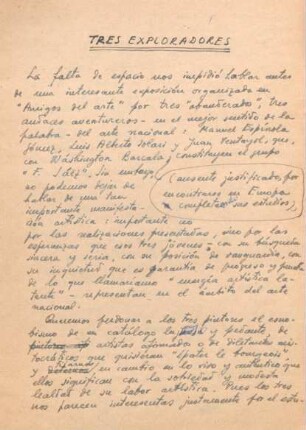 TRES EXPLORADORES
La falta de espacio nos impidió hablar antes
de una interesante exposición organizada en
"Amigos del arte" por tres "abanderados", tres
audaces aventureros - en el mejor sentido de la
palabra - del arte nacional, Manuel Espínola
Gómez, Luis Alberto Solari y Juan Ventayol, que,
con Wáshington Barcala, constituyen el grupo
"F. Sáez". Sin embargo,
(ausente justificado por
encontrarse en Europa
completando sus estudios),
no podemos dejar de
hablar de una tan
importante manifesta-
ción artística; importante no
por las realizaciones presentadas, sino por las
esperanzas que esos tres jóvenes - con su búsqueda
sincera y seria, con su posición de vanguardia, con
su inquietud que es garantía de progreso y fruto
de lo que llamaríamos "energía artística la-
tente", representan en el ámbito del arte
nacional.
Queremos perdonar a los tres pintores el sno-
bismo de un catálogo y pedante, de
artistas afamados o de diletantes aris-
tocráticos que quisieran "épater le bourgeois",
y en cambio en lo vivo y auténtico que
ellos significan con la sobriedad y modesta
lealtad de su labor artística. Pues los tres
nos parecen interesantes justamente por el esfu-